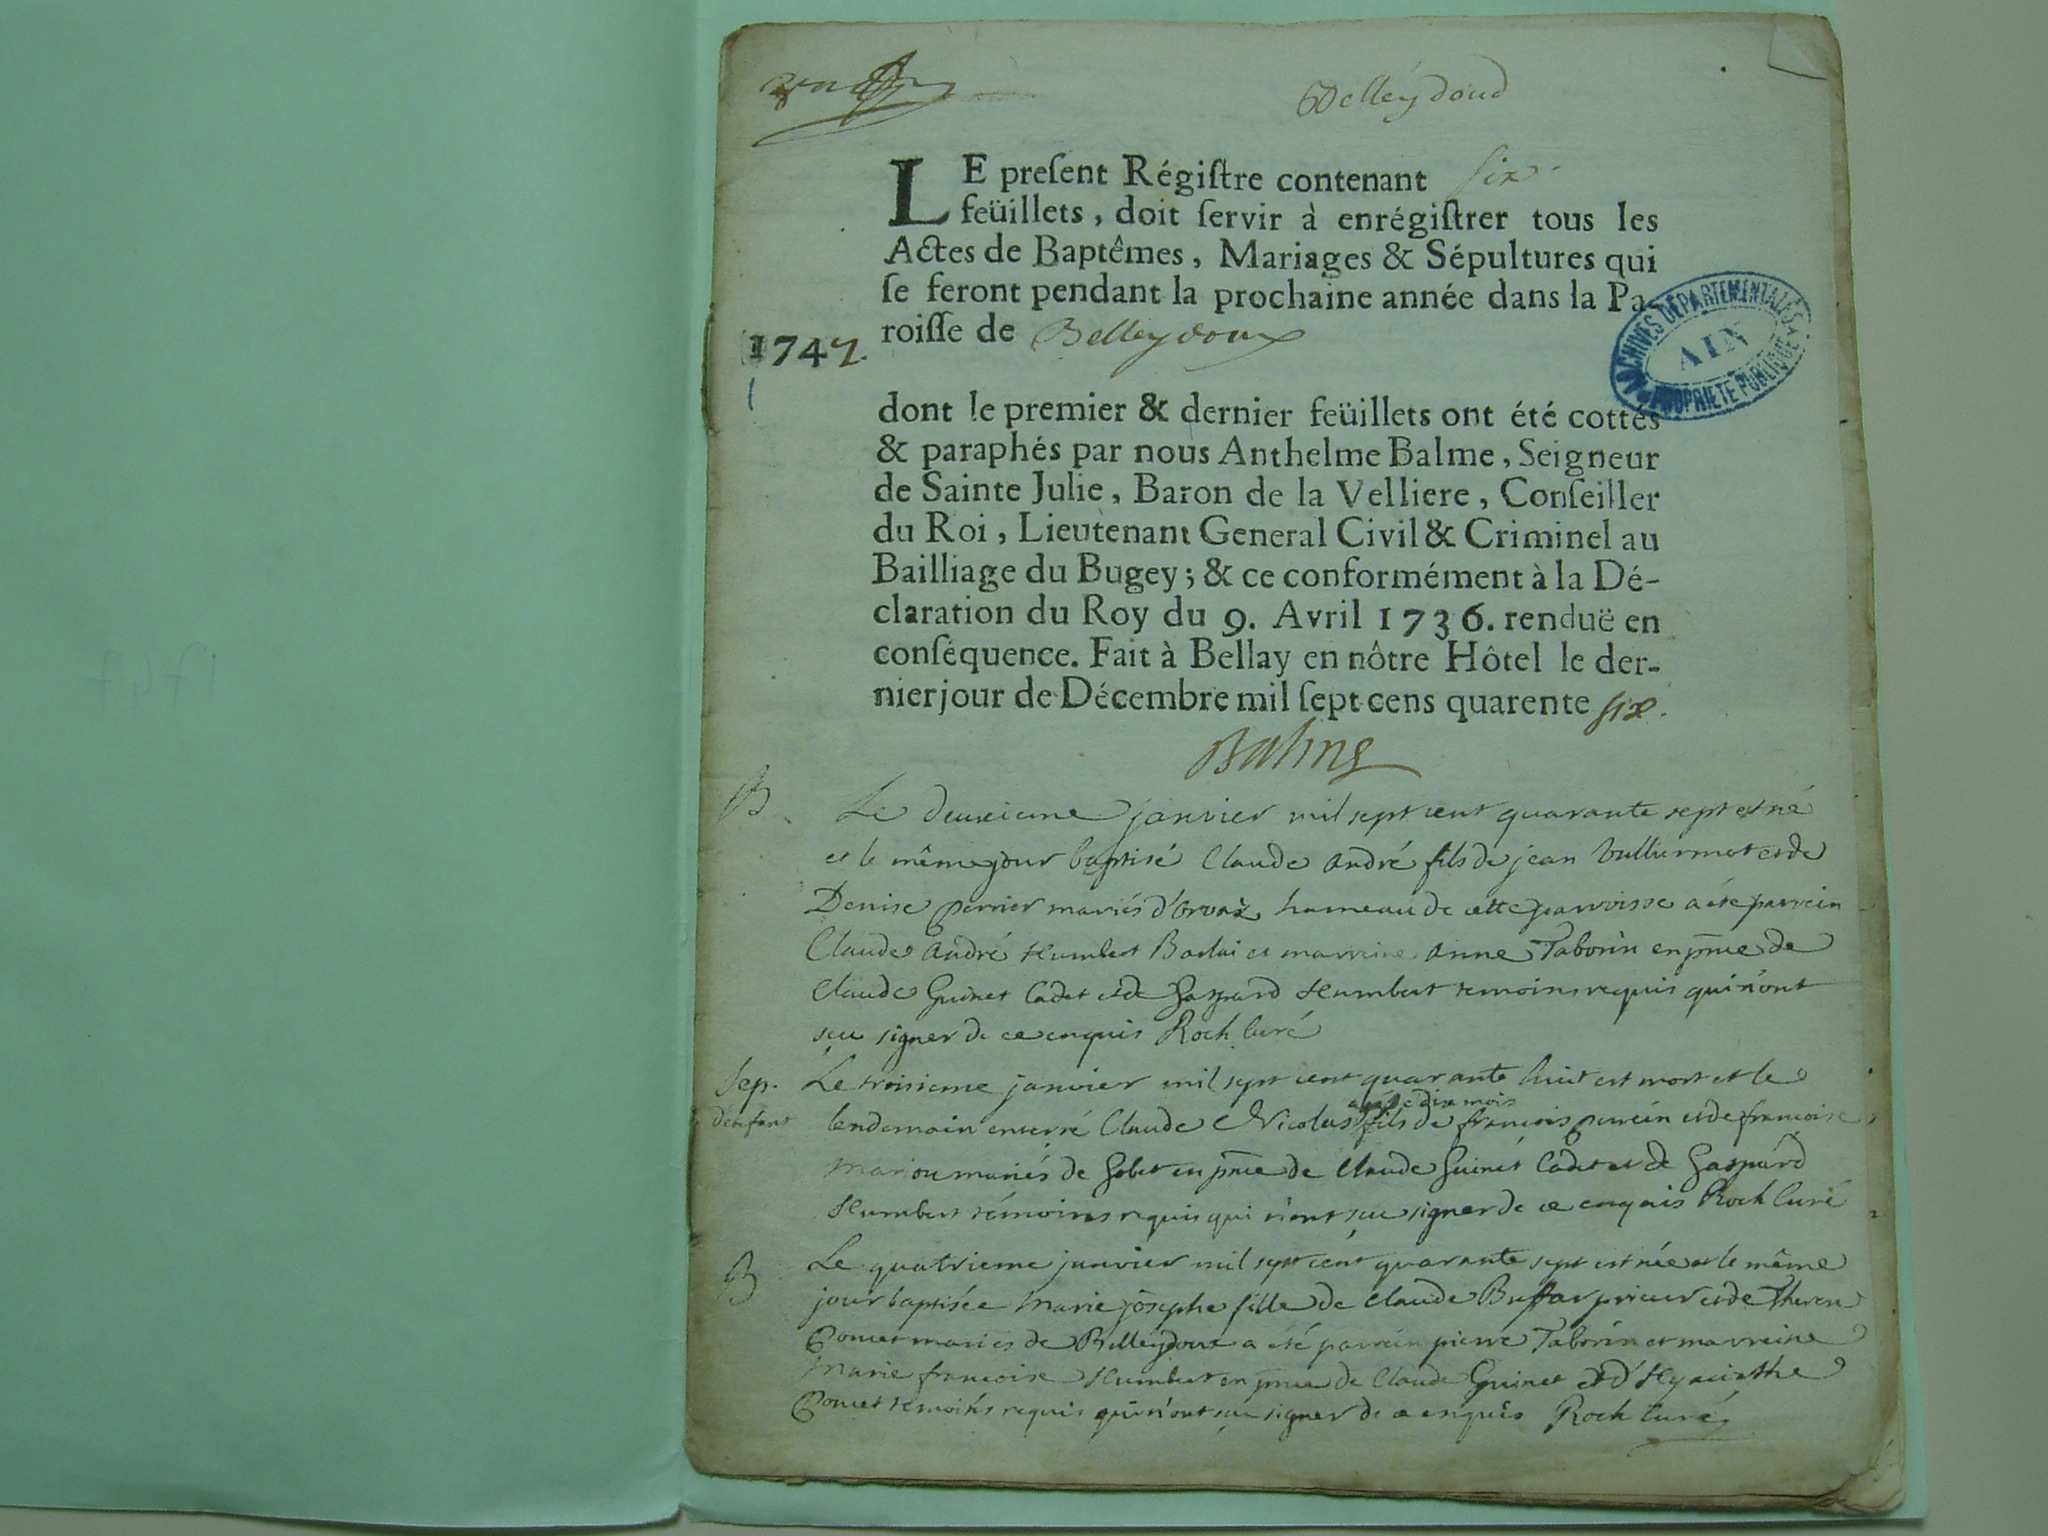 Belleydoud
LE preſent Régiſtre contenant six
feüillets, doit ſervir à enrégiſtrer tous les
Actes de Baptêmes, Mariages & Sépultures qui
ſe feront pendant la prochaine année dans la Pa-
roiſſe de Belleydoux
1747.
ARCHIVES DEPARTEMENTALES
AIN
PROPRIETE PUBLIQUE
dont le premier & dernier feüillets ont été cottés
& paraphés par nous Anthelme Balme, Seigneur
de Sainte Julie, Baron de la Velliere, Conſeiller
du Roi, Lieutenant General Civil & Criminel au
Bailliage du Bugey; & ce conformément à la Dé-
claration du Roy du 9. Avril 1736. renduë en
conſéquence. Fait à Bellay en nôtre Hôtel le der-
nier jour de Décembre mil ſept cens quarente six.
Balme
B
Le deuxieme janvier mil sept cent quarante sept est né
et le même jour baptisé Claude André fils de jean Vulliermet et de
Denise perrier mariés d'Orvaz hameau de cette parroisse a été parrein
Claude André Humbert et marreine Anne Taborin en pnce de
Claude Guinet Cadet et de Gaspard Humbert temoins requis qui n'ont
sçu signer de ce enquis Roch Curé
Sep.
d'enfant
Le troisieme janvier mil sept cent quarante huit est mort et le
lendemain enterré Claude Nicolas agé de dix mois fils de françois et de francoise
mariés de Gobet en pnce de Claude Guinet Cadet et de Gaspard
Humbert témoins requis qui n'ont sçu signer de ce enquis Roch Curé
B
Le quatrieme janvier mil sept cent quarante sept est née et le même
jour baptisée marie josephe fille de Claude Buffar prieur et de Therese
Poncet mariés de Belleydoux a été parrein pierre Taborin et marreine
marie francoise Humbert en pnce de Claude Guinet et d'Hyacinthe
Poncet temoins requis qui n'ont sçu signer de ce enquis Roch Curé